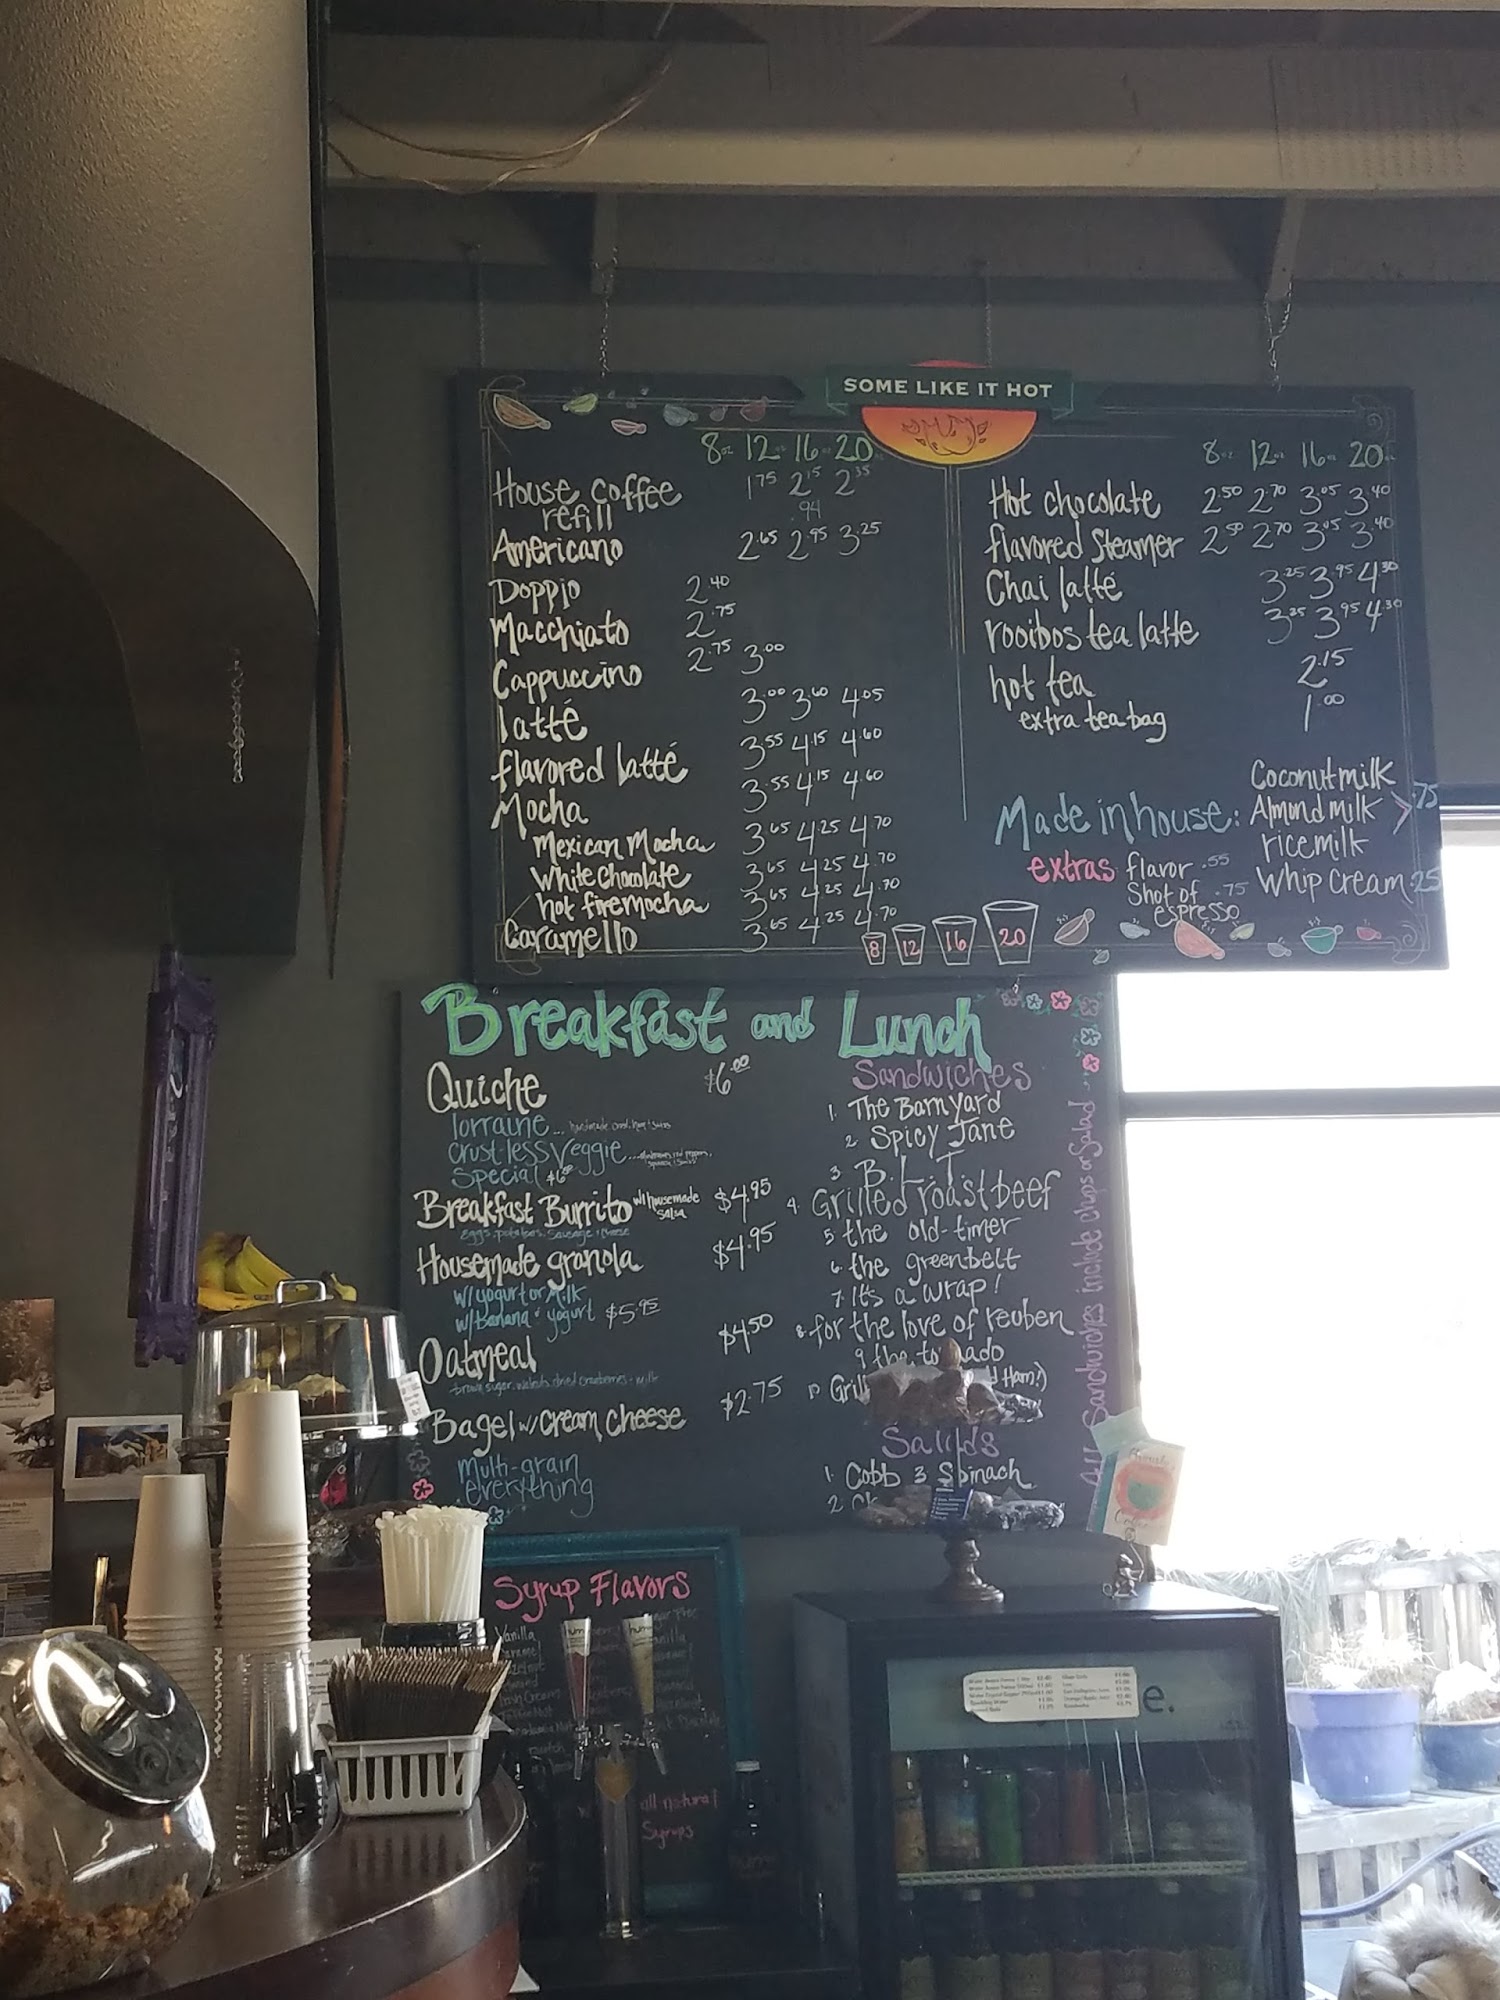 SOME LIKE IT HOT
8oz 12oz 16oz 20oz
House coffee 1.75 2.15 2.35
refill .94
Americano 2.65 2.95 3.25
Doppio 2.40
Macchiato 2.75
Cappuccino 2.75 3.00
latté 3.00 3.60 4.05
flavored latté 3.55 4.15 4.60
Mocha 3.55 4.15 4.60
Mexican Mocha 3.65 4.25 4.70
White Chocolate 3.65 4.25 4.70
hot firemocha 3.65 4.25 4.70
Caramello 3.65 4.25 4.70
8 12 16 20
8oz 12oz 16oz 20oz
Hot chocolate 2.50 2.70 3.05 3.40
flavored steamer 2.50 2.70 3.05 3.40
Chai latté 3.25 3.95 4.30
rooibos tea latte 3.25 3.95 4.30
hot tea 2.15
extra tea bag 1.00
Made in house:
Coconut milk
Almond milk > .75
rice milk
Whip cream .25
extras: flavor .55
Shot of .75
espresso
Breakfast and Lunch
Quiche $6.00
lorraine...
Crust-less Veggie...
Special
Breakfast Burrito w/ housemade salsa $4.95
eggs, potatoes, sausage + cheese
Housemade granola $4.95
w/ yogurt or Milk
w/ Banana + yogurt $5.95
Oatmeal $4.50
brown sugar, walnuts, dried cranberries + milk
Bagel w/ Cream Cheese $2.75
Multi-grain
everything
Sandwiches
1. The Barnyard
2. Spicy Jane
3. B.L.T.
4. Grilled roast beef
5 the old-timer
6. the greenbelt
7. It's a wrap!
8. for the love of reuben
9 the
Ham!)
Salads
1. Cobb 3 Spinach
2
All Sandwiches include chips or Salad
Syrup Flavors
Vanilla
all natural
Syrups